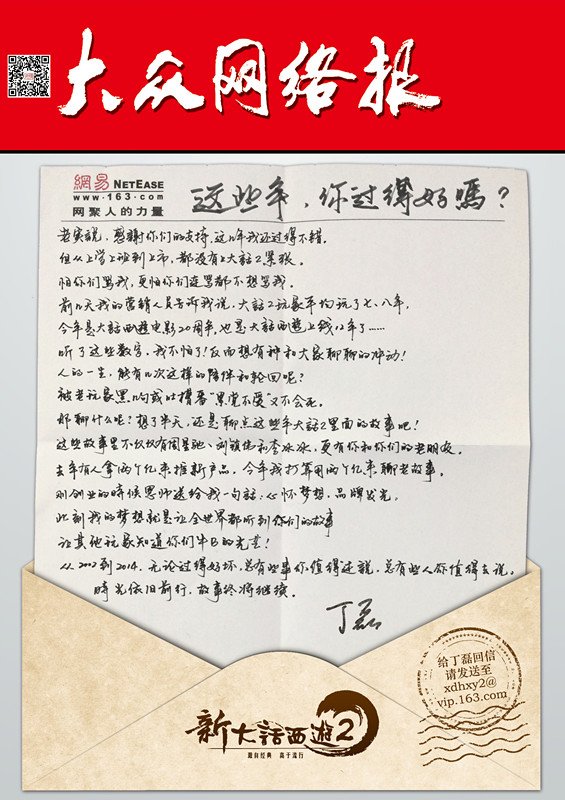 大众网络报
網易 NETEASE
www.163.com
网聚人的力量
这些年，你过得好嗎？
老实说，感谢你们的支持，这几年我还过得不错。
但从上学上班到上市，都没有上大话2累狠。
怕你们骂我，更怕你们连骂都不想骂我。
前几天我的营销人员告诉我说，大话2玩家平均玩了七、八年，
今年是大话西遊电影20周年，也是大话西遊上线12年了……
听了这些数字，我不怕了！反而想有种和大家聊聊的冲动！
人的一生，能有几次这样的陪伴和轮回呢？
被老玩家黑几句或吐槽番“累觉不爱”又不会死。
那聊什么呢？想了半天，还是聊点这些年大话2里面的故事吧！
这些故事里不仅仅有周星驰、刘镇偉和李冰冰，更有你和你们的老朋友。
去年有人拿两个亿来推新产品，今年我打算用两个亿来聊老故事。
刚创业的時候恩师送给我一句話：心怀梦想，品牌发光。
此刻我的梦想就是让全世界都听到你们的故事
让其他玩家知道你们牛B的光芒！
从2002到2014，无论过得好坏，总有些事你值得还说，总有些人你值得去说。
時光依旧前行，故事终将继续。
丁磊
给丁磊回信
请发送至
xdhxy2@
vip.163.com
新大话西遊2
迎向经典 高于流行